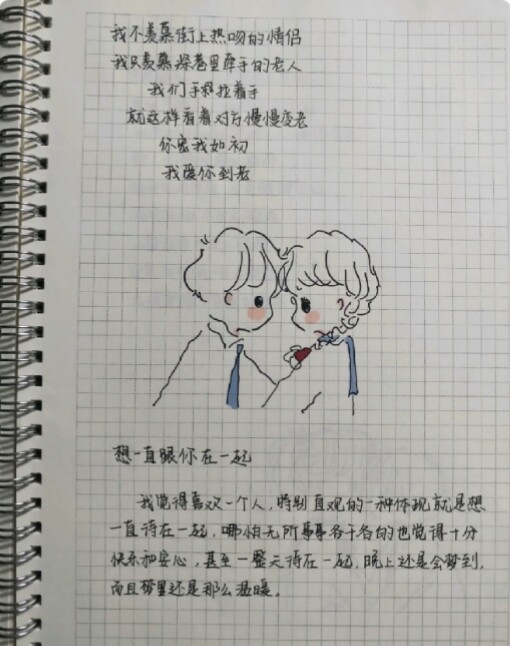 我不羡慕街上热吻的情侣
我只羡慕深巷里牵手的老人
我们手释拉着手
就这样看着对方慢慢变老
你密我如初
我爱你到老
想一直跟你在一起
我觉得喜欢一个人，特别直观的一种体现就是想
一直待在一起，哪怕无所事事各干各的也觉得十分
快乐和安心，甚至一整天待在一起，晚上还是会梦到，
而且梦里还是那么温暖。